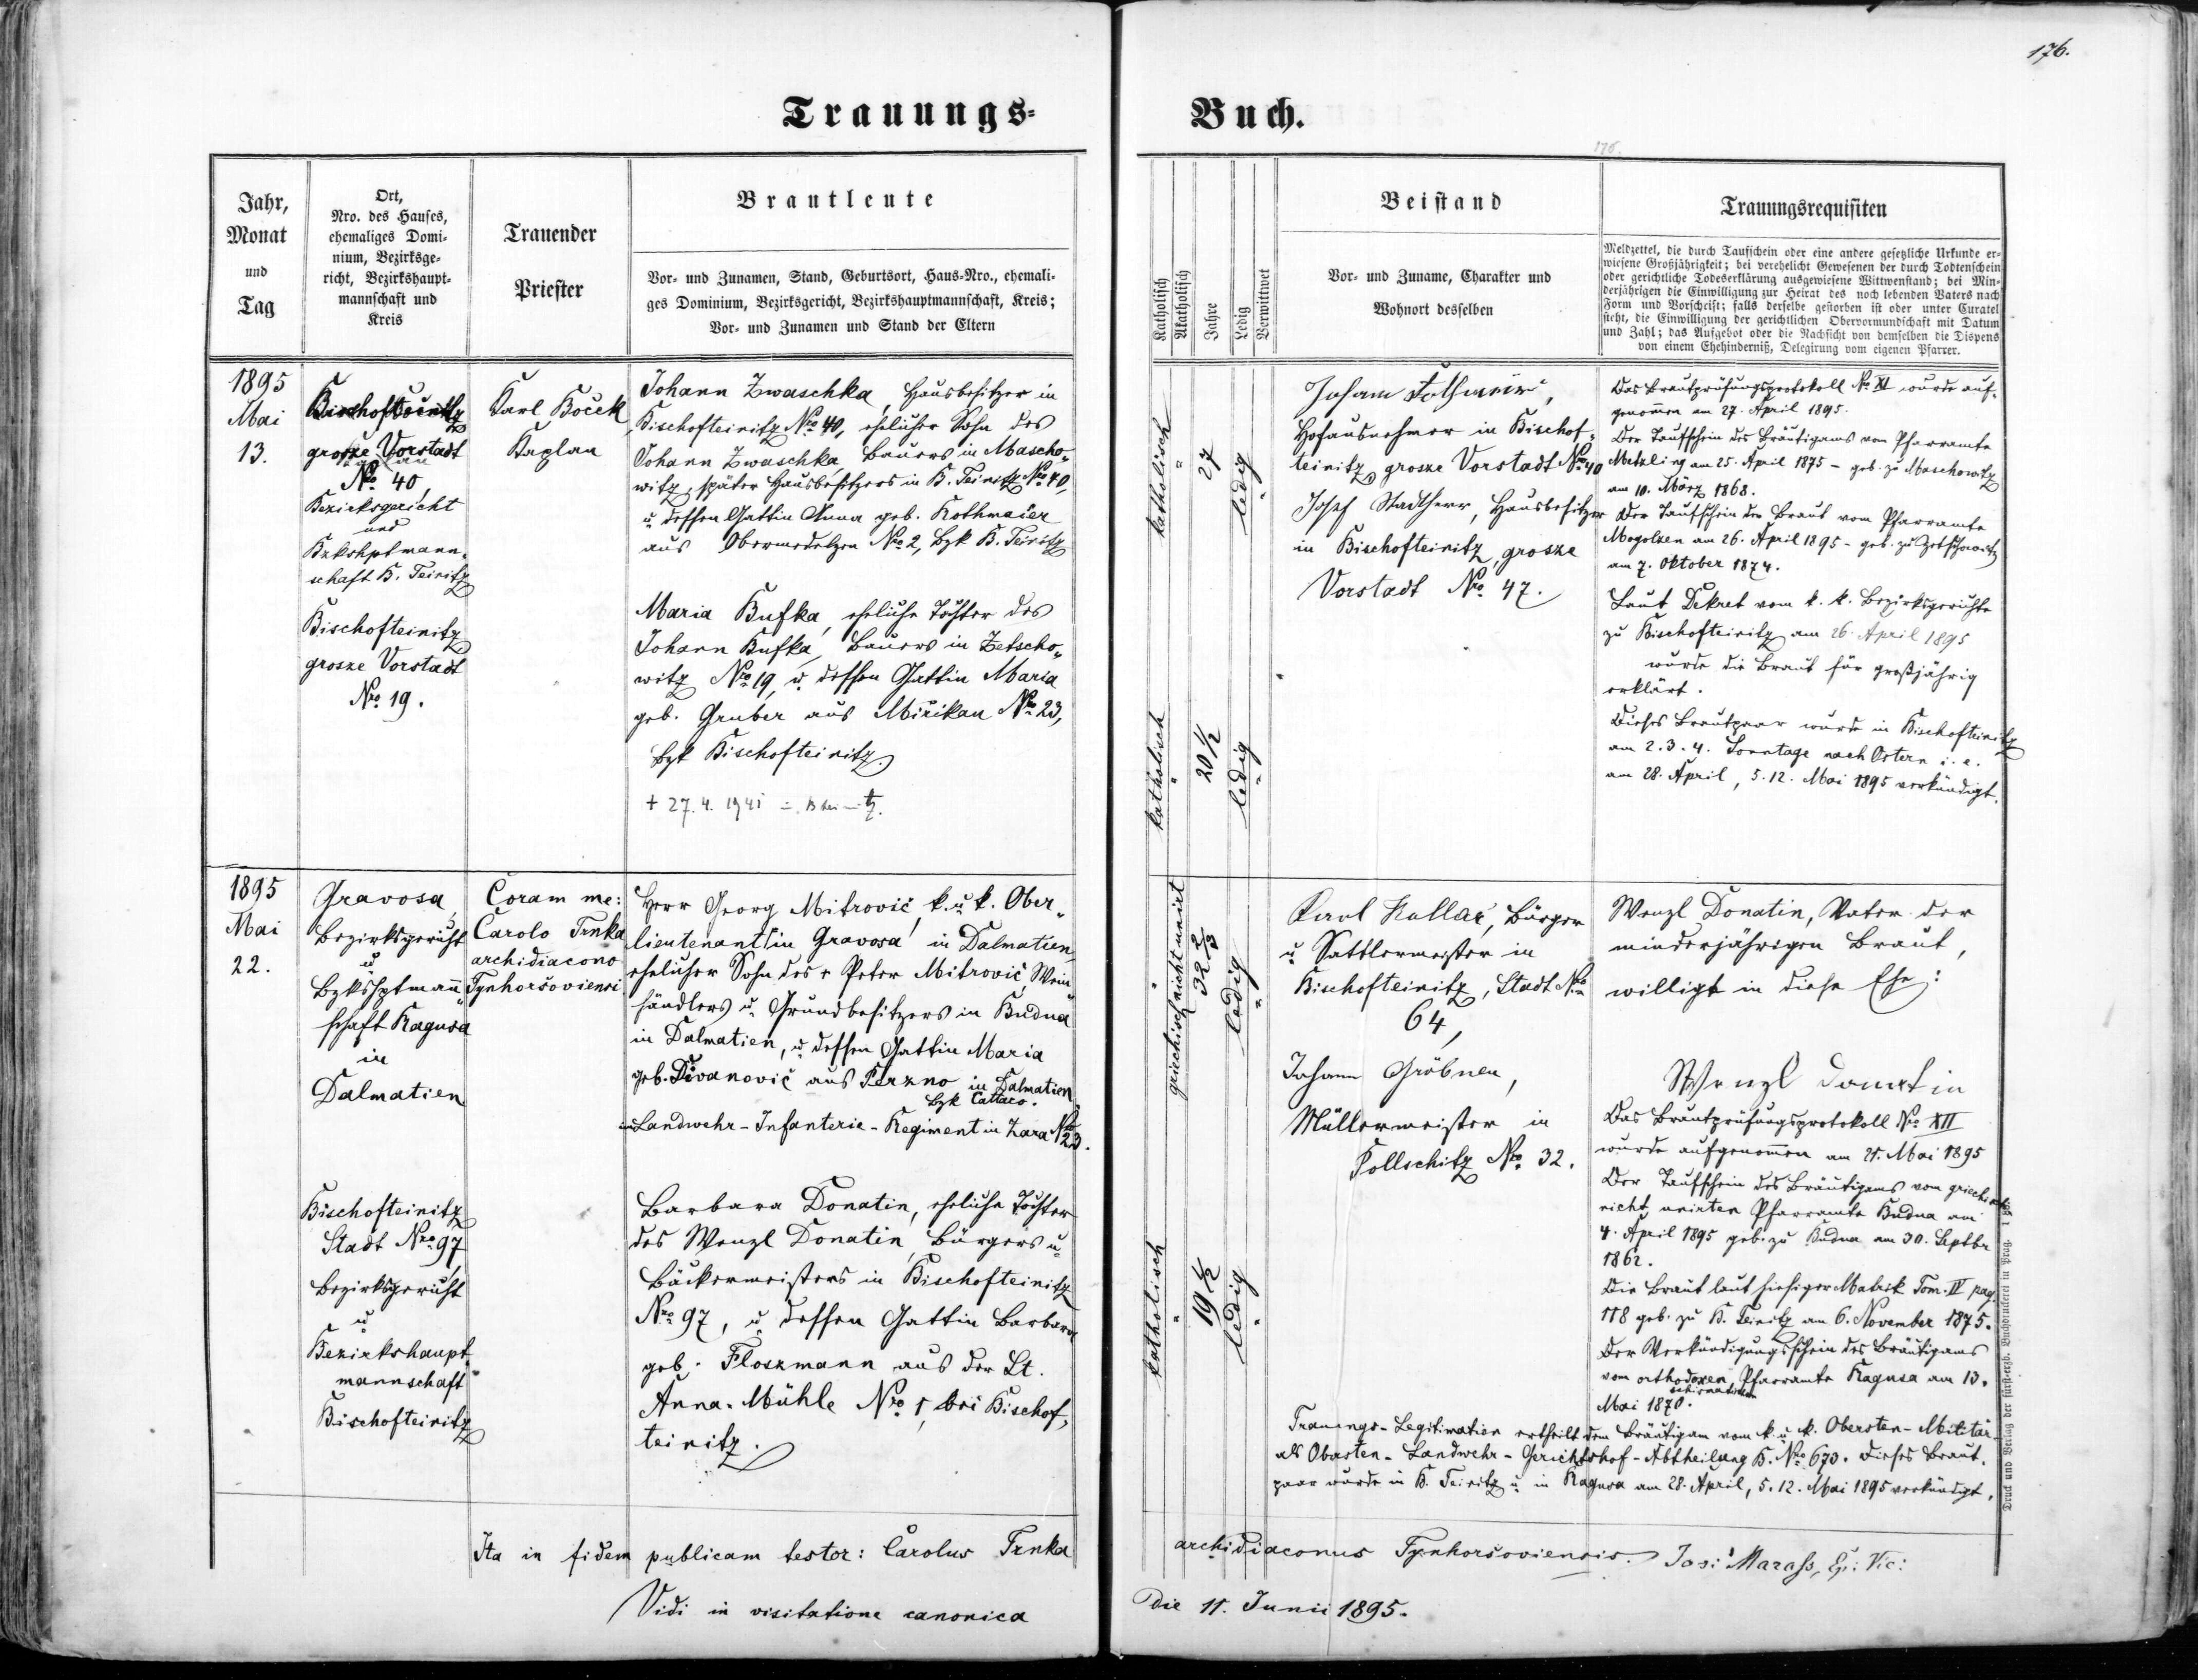 176.
Trauungs-
Buch.
176.
Jahr,
Monat
und
Tag
Ort,
Nro. des Hauses,
ehemaliges Domi-
nium, Bezirksge-
richt, Bezirkshaupt-
mannschaft und
Kreis
Trauender
Priester
Brautleute
Vor- und Zunamen, Stand, Geburtsort, Haus-Nro., ehemali-
ges Dominium, Bezirksgericht, Bezirkshauptmannschaft, Kreis;
Vor- und Zunamen und Stand der Eltern
Katholisch
Akatholisch
Jahre
Ledig
Verwittwet
Beistand
Vor- und Zuname, Charakter und
Wohnort desselben
Trauungsrequisiten
Meldzettel, die durch Taufschein oder eine andere gesetzliche Urkunde er-
wiesene Großjährigkeit; bei verehelicht Gewesenen der durch Todtenschein
oder gerichtliche Todeserklärung ausgewiesene Wittwenstand; bei Min-
derjährigen die Einwilligung zur Heirat des noch lebenden Vaters nach
Form und Vorschrift; falls derselbe gestorben ist oder unter Curatel
steht, die Einwilligung der gerichtlichen Obervormundschaft mit Datum
und Zahl; das Aufgebot oder die Nachsicht von demselben die Dispens
von einem Ehehinderniß, Delegirung vom eigenen Pfarrer.
1895
Mai
13.
Bischofteinitz
grosze Vorstadt
No 40
Bezirksgericht
und
Bzkshptmann-
schaft B. Teinitz
Bischofteinitz
grosze Vorstadt
No 19.
Karl Boček
Kaplan
Johann Zwaschka, Hausbesitzer in
Bischofteinitz Nro 40, ehelicher Sohn des
Johann Zwaschka Bauers in Mascho-
witz, später Hausbesitzers in B. Teinitz No 40,
u dessen Gattin Anna geb. Rothmaier
aus Obermedelzen No 2, Bzk B. Teinitz
Maria Bufka, eheliche Tochter des
Johann Bufka, Bauers in Zetscho-
witz No 19, u dessen Gattin Maria
geb. Gruber aus Miřikau No 23,
Bzk Bischofteinitz.
+ 27. 4. 1941
katholisch
27
ledig
katholisch
20 1/2
ledig
Johann
Hofausnehmer in Bischof-
teinitz grosze Vorstadt No 40
Josef Stadtherr, Hausbesitzer
in Bischofteinitz, grosze
Vorstadt No 47.
Das Brautprüfungsprotokoll No XI wurde auf-
genommen am 27. April 1895.
Der Taufschein des Bräutigams vom Pfarramte
Metzling am 25. April 1875 - geb. zu Maschowitz
am 10. März 1868.
Der Taufschein der Braut vom Pfarramte
Mogolzen am 26. April 1895 - geb. zu Zetschowitz
am 7. Oktober 1874.
Laut Dekret vom k. k. Bezirksgerichte
zu Bischofteinitz am 26. April 1895
wurde die Braut für großjährig
erklärt.
Dieses Brautpaar wurde in Bischofteinitz
am 2. 3. 4. Sonntage nach Ostern i. e.
am 28. April, 5. 12. Mai 1895 verkündigt.
1895
Mai
22.
Gravosa,
Bezirksgericht
u
Bzkshptmann-
schaft Ragusa
in
Dalmatien
Bischofteinitz
Stadt Nro 97
Bezirksgericht
u
Bezirkshaupt-
mannschaft
Bischofteinitz
Coram me:
Carolo Trnka
archidiacono
Tynhoršoviensi
Herr Georg Mitrović, k. u k. Ober-
lieutenant in Gravosa in Dalmatien
ehelicher Sohn des + Peter Mitrović Wein-
händlers u Grundbesitzers in Budua
in Dalmatien, u dessen Gattin Maria
geb. Divanović aus Perzno in Dalmatien,
Bzk Cattaro.
im Landwehr-Infanterie-Regiment in Zara No 23.
Barbara Donatin, eheliche Tochter
des Wenzl Donatin, Bürgers u
Bäckermeisters in Bischofteinitz
Nro 97, u dessen Gattin Barbara
geb. Floszmann aus der St.
Anna-Mühle No 1, bei Bischof-
teinitz.
griechisch nicht unirt
32 2/3
ledig
katholisch
19 1/2
ledig
Karl Kollar, Bürger
u Sattlermeister in
Bischofteinitz, Stadt No
64,
Johann Gröbner,
Müllermeister in
Pollschitz No 32.
Wenzl Donatin, Vater der
minderjährigen Braut,
willigt in diese Ehe:
Wenzl Donatin
Das Brautprüfungsprotokoll No XII
wurde aufgenommen am 21. Mai 1895
Der Taufschein des Bräutigams vom griechisch
nicht unirten Pfarramte Budua am
4. April 1895 geb. zu Budua am 30. Septbr
1862.
Die Braut laut hiesiger Matrik Tom. IV pag.
118 geb. zu B. Teinitz am 6. November 1875.
Der Verkündigungsschein des Bräutigams
vom orthodoxen Pfarramte Ragusa am 13.
schismatischen
Mai 1870.
Trauungs-Legitimation ertheilt dem Bräutigam vom k. u k. Obersten-Militär-
als Obersten-Landwehr-Gerichtshof-Abtheilung B. No 673. Dieses Braut-
paar wurde in B. Teinitz u in Ragusa am 28. April, 5. 12. Mai 1895 verkündigt.
Ita in fidem publicam testor: Carolus Trnka
archidiaconus Tynhoršoviensis.
Vidi in visitatione canonica
die 11. Junii 1895.
Druck und Verlag der fürst-erzb. Buchdruckerei in Prag.